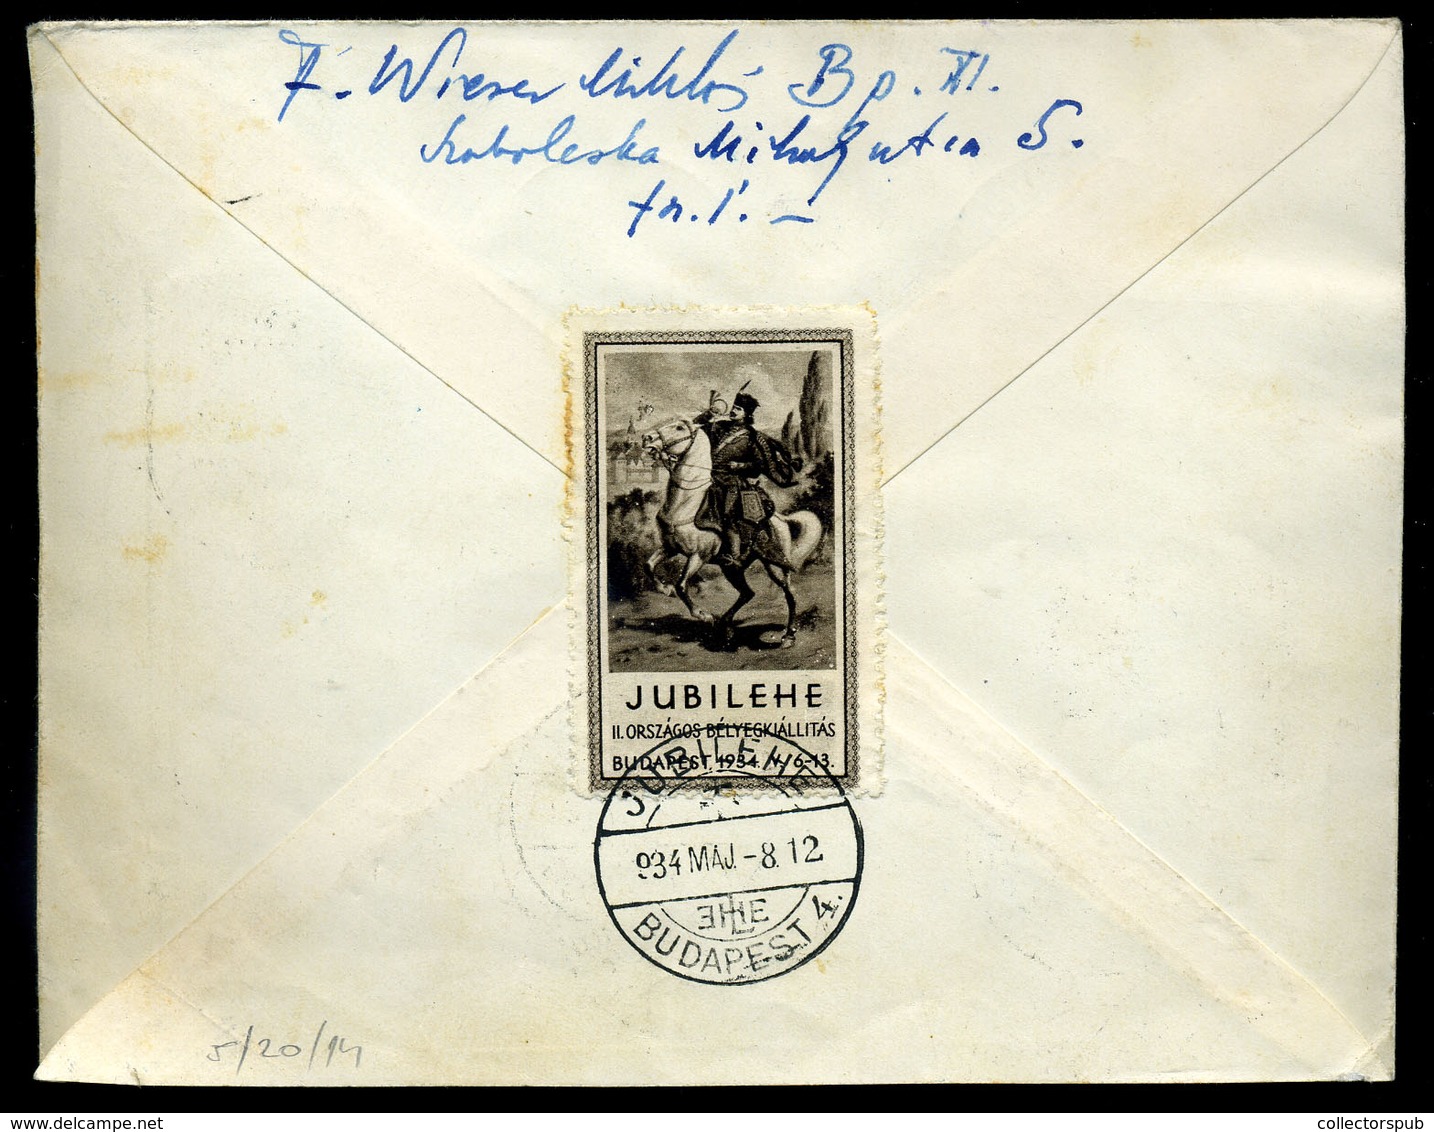 F. Wieser Miklós Bp. XI.
Mihály utca 5.
JUBILEHE
II. ORSZÁGOS BÉLYEGKIÁLLITÁS
BUDAPEST. 1934. V. 6-13.
JUBILEHE
934 MÁJ. -8. 12
LEHE
BUDAPEST 4.
5/20/14
collectorspub